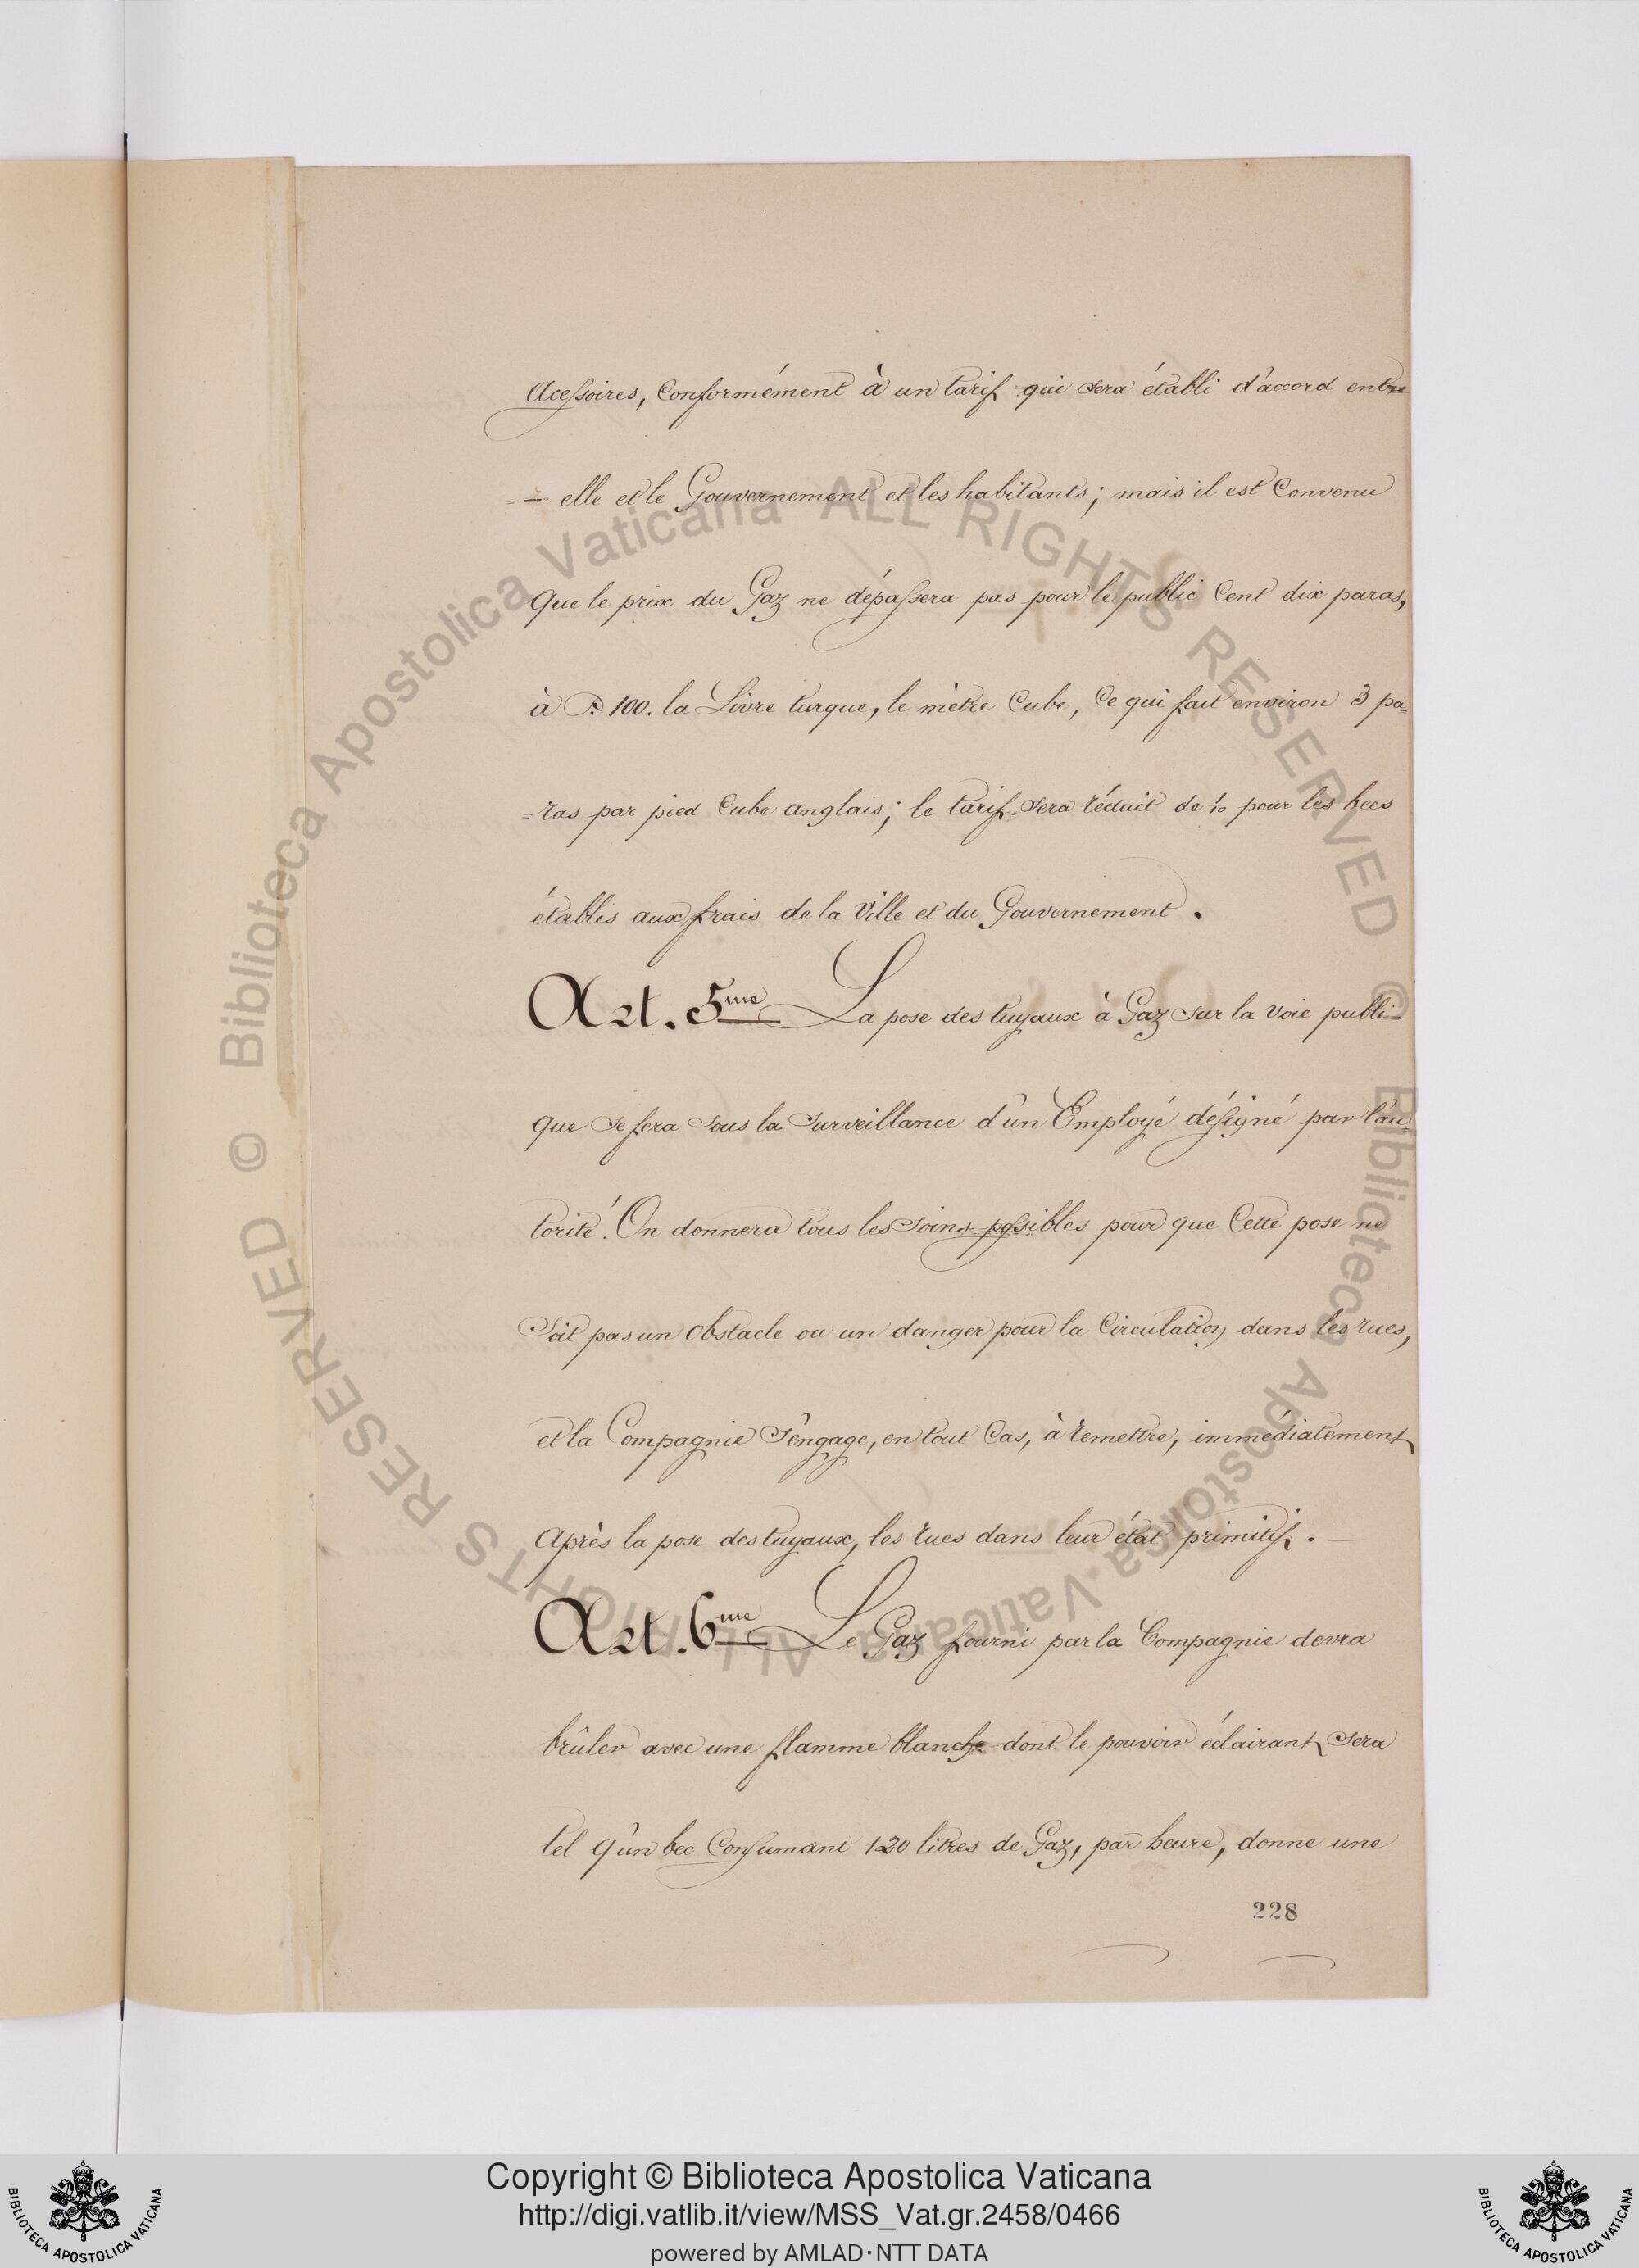 Acessoires, Conformément à un tarif qui sera établi d'accord entre
=— elle et le Gouvernement et les habitants; mais il est Convenu
que le prix du Gaz ne dépassera pas pour le public Cent dix paras,
à P. 100. la Livre turque, le mètre Cube, Ce qui fait environ 3 pa=
=ras par pied Cube anglais; le tarif sera réduit de 1/10 pour les becs
établis aux frais de la Ville et du Gouvernement.
Art. 5me La pose des tuyaux à Gaz sur la Voie publi
que se fera sous la surveillance d'un Employé désigné par l'au
torité. On donnera tous les soins possibles pour que Cette pose ne
Soit pas un obstacle ou un danger pour la Circulation dans les rues,
et la Compagnie s'engage, en tout Cas, à remettre, immédiatement
Après la pose des tuyaux, les rues dans leur état primitif.—
Art. 6me Le Gaz fourni par la Compagnie devra
brûler avec une flamme blanche dont le pouvoir éclairant sera
tel qu'un bec Consumant 120 litres de Gaz, par heure, donne une
228
© Biblioteca Apostolica Vaticana ALL RIGHTS RESERVED © Biblioteca Apostolica Vaticana ALL RIGHTS RESERVED
Copyright © Biblioteca Apostolica Vaticana
http://digi.vatlib.it/view/MSS_Vat.gr.2458/0466
powered by AMLAD·NTT DATA
BIBLIOTECA APOSTOLICA VATICANA
BIBLIOTECA APOSTOLICA VATICANA